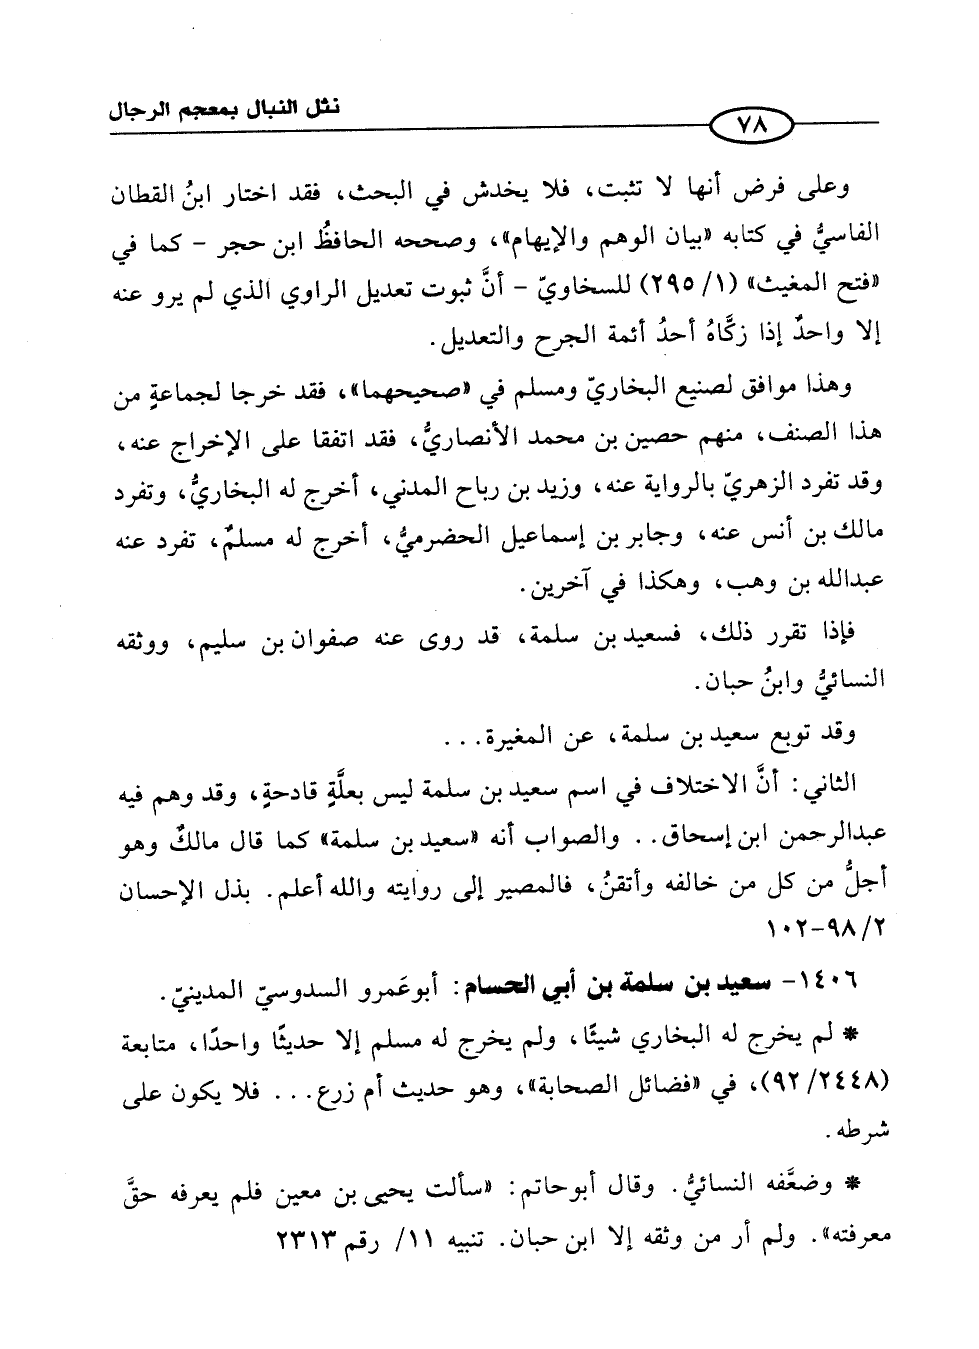 نثل النبال بمعجم الرجال
٧٨
وعلى فرض أنها لا تثبت، فلا يخدش في البحث، فقد اختار ابنُ القطان
الفاسيُّ في كتابه «بيان الوهم والإيهام»، وصححه الحافظُ ابن حجر - كما في
«فتح المغيث» (١/ ٢٩٥) للسخاويّ - أنَّ ثبوت تعديل الراوي الذي لم يرو عنه
إلا واحدٌ إذا زكَّاهُ أحدُ أئمة الجرح والتعديل.
وهذا موافق لصنيع البخاريّ ومسلم في «صحيحهما»، فقد خرجا لجماعةٍ من
هذا الصنف، منهم حصين بن محمد الأنصاريُّ، فقد اتفقا على الإخراج عنه،
وقد تفرد الزهريّ بالرواية عنه، وزيد بن رباح المدني، أخرج له البخاريُّ، وتفرد
مالك بن أنس عنه، وجابر بن إسماعيل الحضرميُّ، أخرج له مسلمٌ، تفرد عنه
عبدالله بن وهب، وهكذا في آخرين.
فإذا تقرر ذلك، فسعيد بن سلمة، قد روى عنه صفوان بن سليم، ووثقه
النسائيُّ وابنُ حبان.
وقد توبع سعيد بن سلمة، عن المغيرة...
الثاني: أنَّ الاختلاف في اسم سعيد بن سلمة ليس بعلَّةٍ قادحةٍ، وقد وهم فيه
عبدالرحمن ابن إسحاق.. والصواب أنه «سعيد بن سلمة» كما قال مالكٌ وهو
أجلُّ من كل من خالفه وأتقنُ، فالمصير إلى روايته والله أعلم. بذل الإحسان
٢/ ٩٨-١٠٢
١٤٠٦- سعيد بن سلمة بن أبي الحسام: أبو عَمرو السدوسيّ المدينيّ.
* لم يخرج له البخاري شيئًا، ولم يخرج له مسلم إلا حديثًا واحدًا، متابعة
(٢٤٤٨/ ٩٢)، في «فضائل الصحابة»، وهو حديث أم زرع... فلا يكون على
شرطه.
* وضعَّفه النسائيُّ. وقال أبو حاتم: «سألت يحيى بن معين فلم يعرفه حقَّ
معرفته». ولم أر من وثقه إلا ابن حبان. تنبيه ١١/ رقم ٢٣١٣